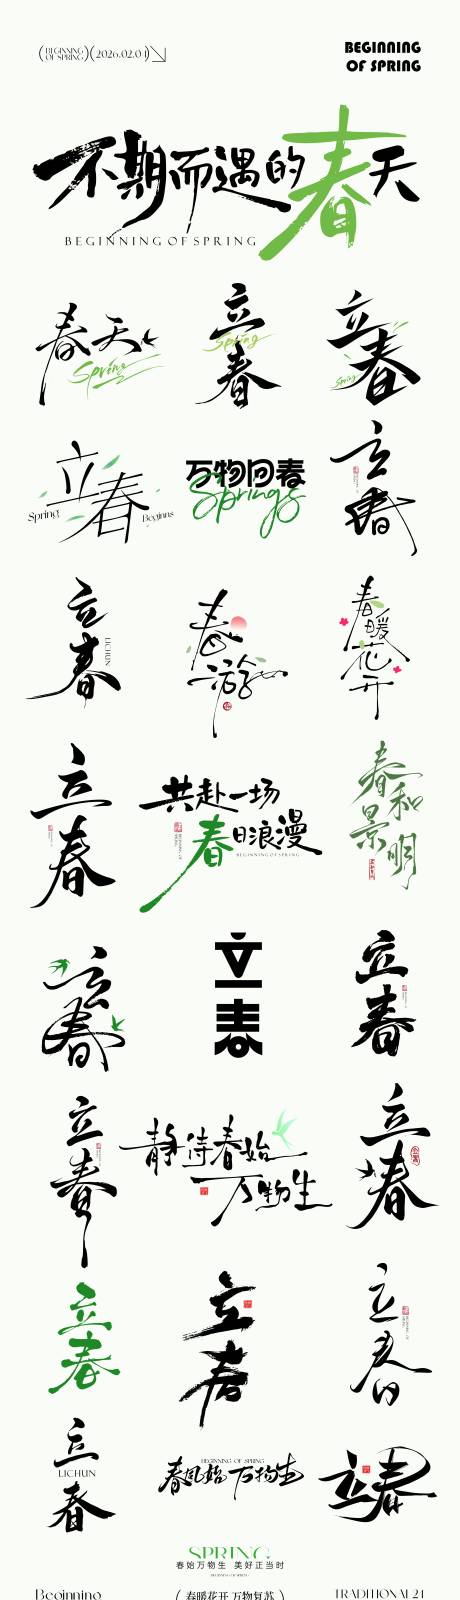 (BEGINNING OF SPRING)(2026.02.04)
BEGINNING
OF SPRING
不期而遇的春天
BEGINNING OF SPRING
春天
Spring
立春
Spring
立春
Spring
立春
Spring
Begins
万物回春
Springs
立春
立春
LICHUN
春游
春暖花开
立春
共赴一场
春日浪漫
BEGINNING OF SPRING
春和景明
立春
立春
立春
立春
静待春始
万物生
立春
立春
立春
立春
立春
LICHUN
BEGINNING OF SPRING
春风始 万物生
立春
SPRING
春始万物生 美好正当时
Beginning
(春暖花开 万物复苏)
TRADITIONAL 24